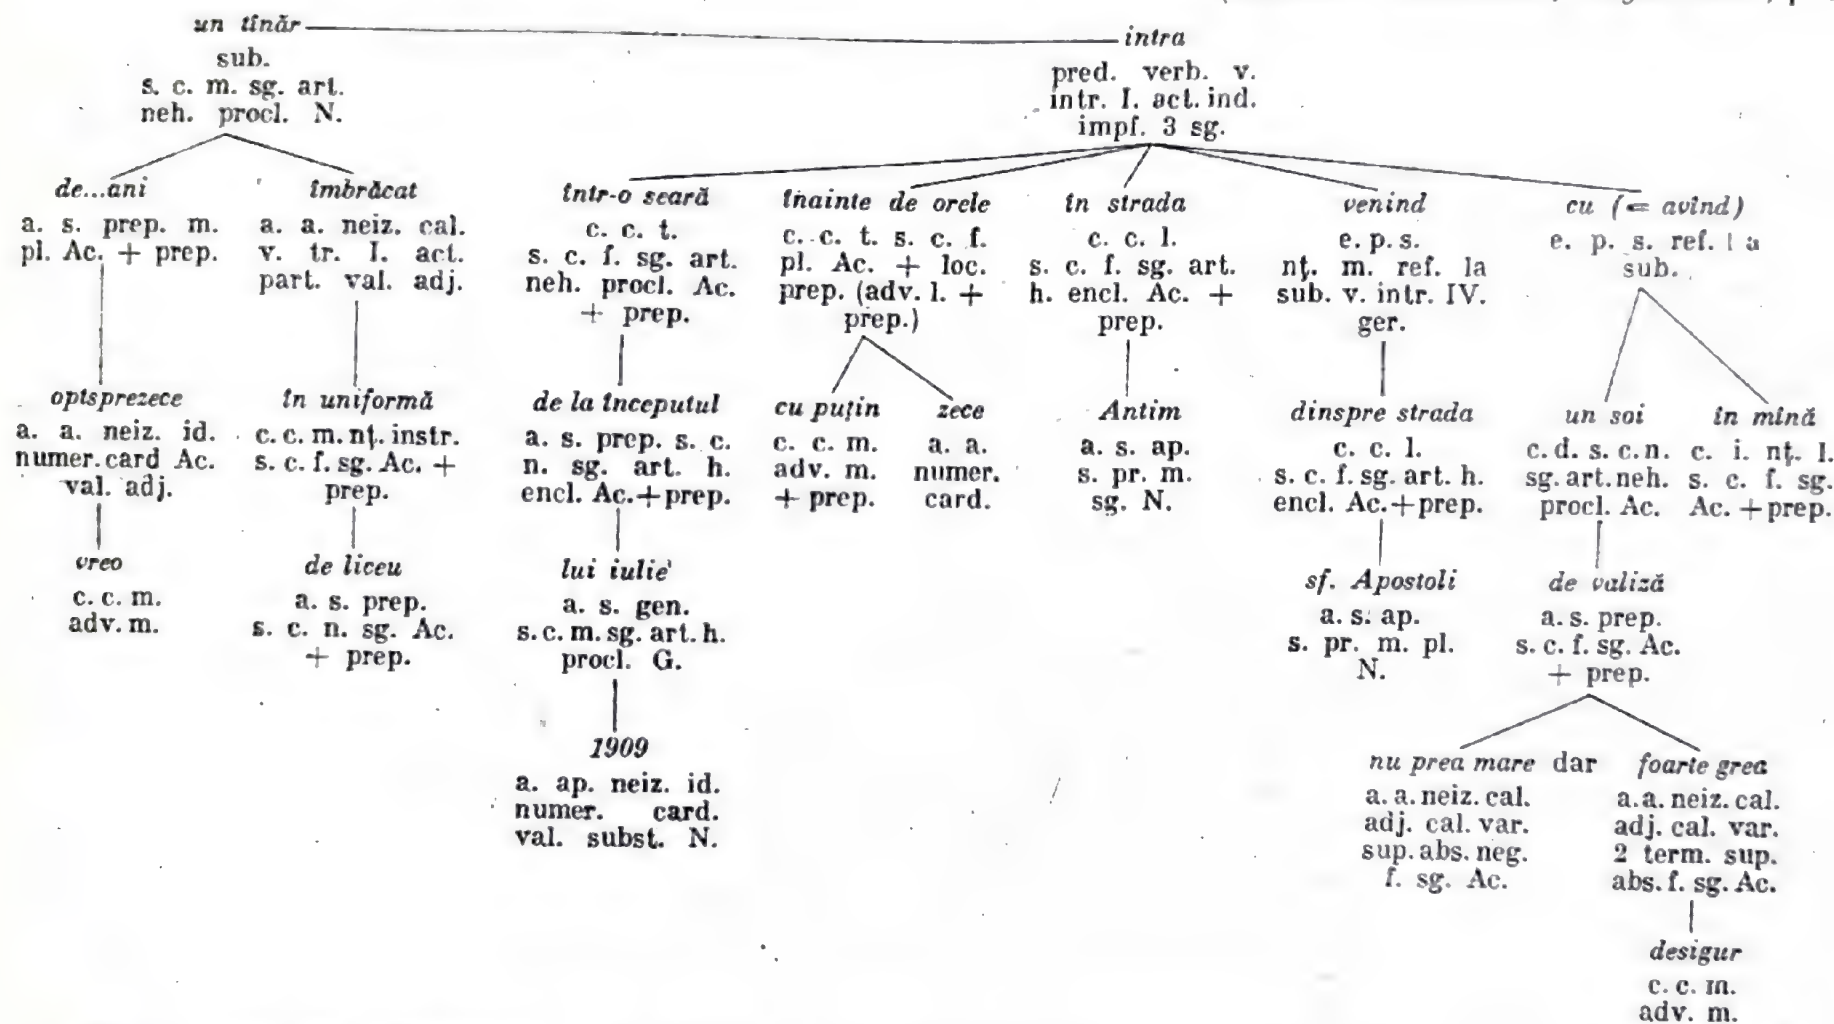 un tînăr
intra
sub.
s. c. m. sg. art.
neh. procl. N.
pred. verb. v.
intr. I. act. ind.
impf. 3 sg.
de...ani
a. s. prep. m.
pl. Ac. + prep.
îmbrăcat
a. a. neiz. cal.
v. tr. I. act.
part. val. adj.
într-o seară
c. c. t.
s. c. f. sg. art.
neh. procl. Ac.
+ prep.
înainte de orele
c. c. t. s. c. f.
pl. Ac. + loc.
prep. (adv. l. +
prep.)
în strada
c. c. l.
s. c. f. sg. art.
h. encl. Ac. +
prep.
venind
e. p. s.
nț. m. ref. la
sub. v. intr. IV.
ger.
cu (= avînd)
e. p. s. ref. la
sub.
optsprezece
a. a. neiz. id.
numer. card Ac.
val. adj.
în uniformă
c. c. m. nț. instr.
s. c. f. sg. Ac. +
prep.
de la începutul
a. s. prep. s. c.
n. sg. art. h.
encl. Ac. + prep.
cu puțin
c. c. m.
adv. m.
+ prep.
zece
a. a.
numer.
card.
Antim
a. s. ap.
s. pr. m.
sg. N.
dinspre strada
c. c. l.
s. c. f. sg. art. h.
encl. Ac. + prep.
un soi
c. d. s. c. n.
sg. art. neh.
procl. Ac.
în mînă
c. i. nț. l.
s. c. f. sg.
Ac. + prep.
vreo
c. c. m.
adv. m.
de liceu
a. s. prep.
s. c. n. sg. Ac.
+ prep.
lui iulie
a. s. gen.
s. c. m. sg. art. h.
procl. G.
sf. Apostoli
a. s. ap.
s. pr. m. pl.
N.
de valiză
a. s. prep.
s. c. f. sg. Ac.
+ prep.
1909
a. ap. neiz. id.
numer. card.
val. subst. N.
nu prea mare dar foarte grea
a. a. neiz. cal.
adj. cal. var.
sup. abs. neg.
f. sg. Ac.
a. a. neiz. cal.
adj. cal. var.
2 term. sup.
abs. f. sg. Ac.
desigur
c. c. m.
adv. m.